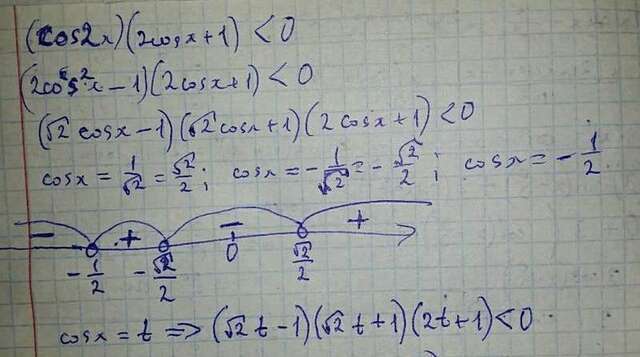 (cos2x)(2cosx+1) < 0
(2cos²x − 1)(2cosx+1) < 0
(√2 cosx − 1)(√2 cosx+1)(2cosx+1) < 0
cosx = 1/√2 = √2/2 ; cosx = − 1/√2 = − √2/2 ; cosx = − 1/2
− + − +
− 1/2 − √2/2 0 √2/2
cosx = t ⇒ (√2 t − 1)(√2 t + 1)(2t+1) < 0